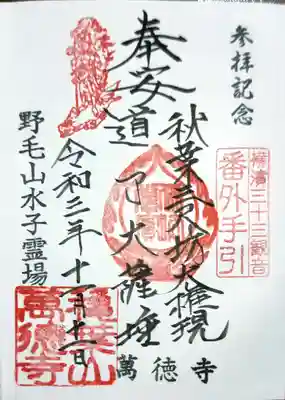 参拝記念
横濱三十三観音
番外手引
奉安
秋葉三尺坊大権現
道了大薩埵
令和二年十一月十一日
野毛山水子霊場
萬徳寺
萬徳寺